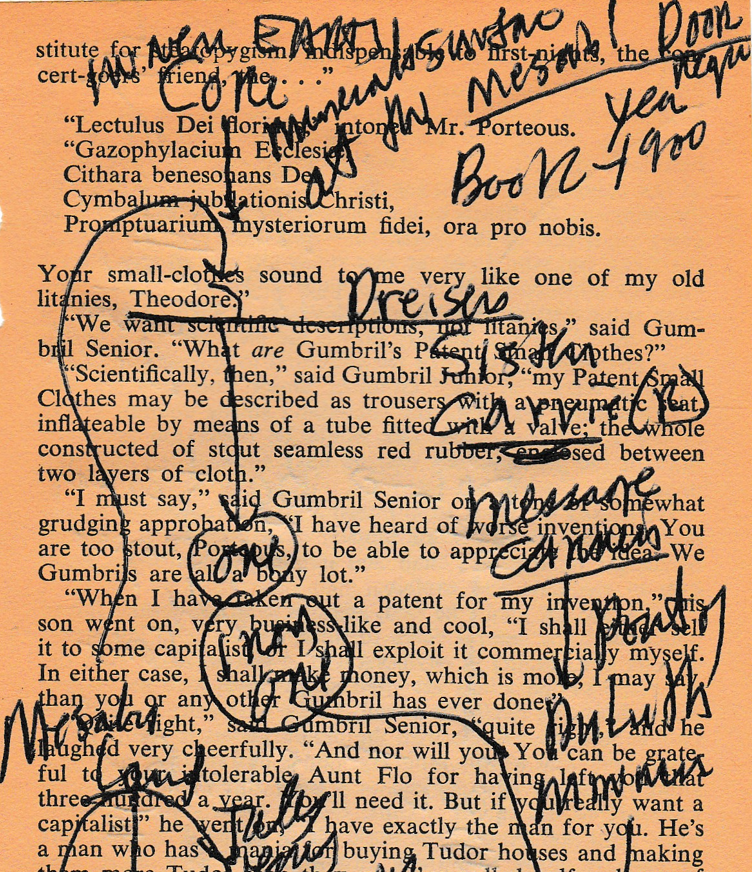 INNER EARTH
stitute for steatopygism, indispensable to first-nights, the con-
cert-goers' friend, the . . ."
Core
minerals surface
at the Mesabi! Door
Book - 1900
"Lectulus Dei floridus," intoned Mr. Porteous.
"Gazophylacium Ecclesiæ,
Cithara benesonans Dei,
Cymbalum jubilationis Christi,
Promptuarium mysteriorum fidei, ora pro nobis.
Your small-clothes sound to me very like one of my old
litanies, Theodore."
Dreisers
"We want scientific descriptions, not litanies," said Gum-
bril Senior. "What are Gumbril's Patent Small-Clothes?"
Sister
"Scientifically, then," said Gumbril Junior, "my Patent Small-
Clothes may be described as trousers with a pneumatic seat,
Carrie(R)
inflateable by means of a tube fitted with a valve; the whole
constructed of stout seamless red rubber, enclosed between
two layers of cloth."
message
"I must say," said Gumbril Senior on a tone of somewhat
grudging approbation, "I have heard of worse inventions. You
are too stout, Porteous, to be able to appreciate the idea. We
Carriers
Gumbrils are all a bony lot."
one
"When I have taken out a patent for my invention," his
son went on, very business-like and cool, "I shall either sell
it to some capitalist, or I shall exploit it commercially myself.
In either case, I shall make money, which is more, I may say,
than you or any other Gumbril has ever done."
iron
ore
Duluth
"Quite right," said Gumbril Senior, "quite right," and he
laughed very cheerfully. "And nor will you. You can be grate-
ful to your intolerable Aunt Flo for having left you that
three hundred a year. You'll need it. But if you really want a
capitalist," he went on, "I have exactly the man for you. He's
a man who has a mania for buying Tudor houses and making